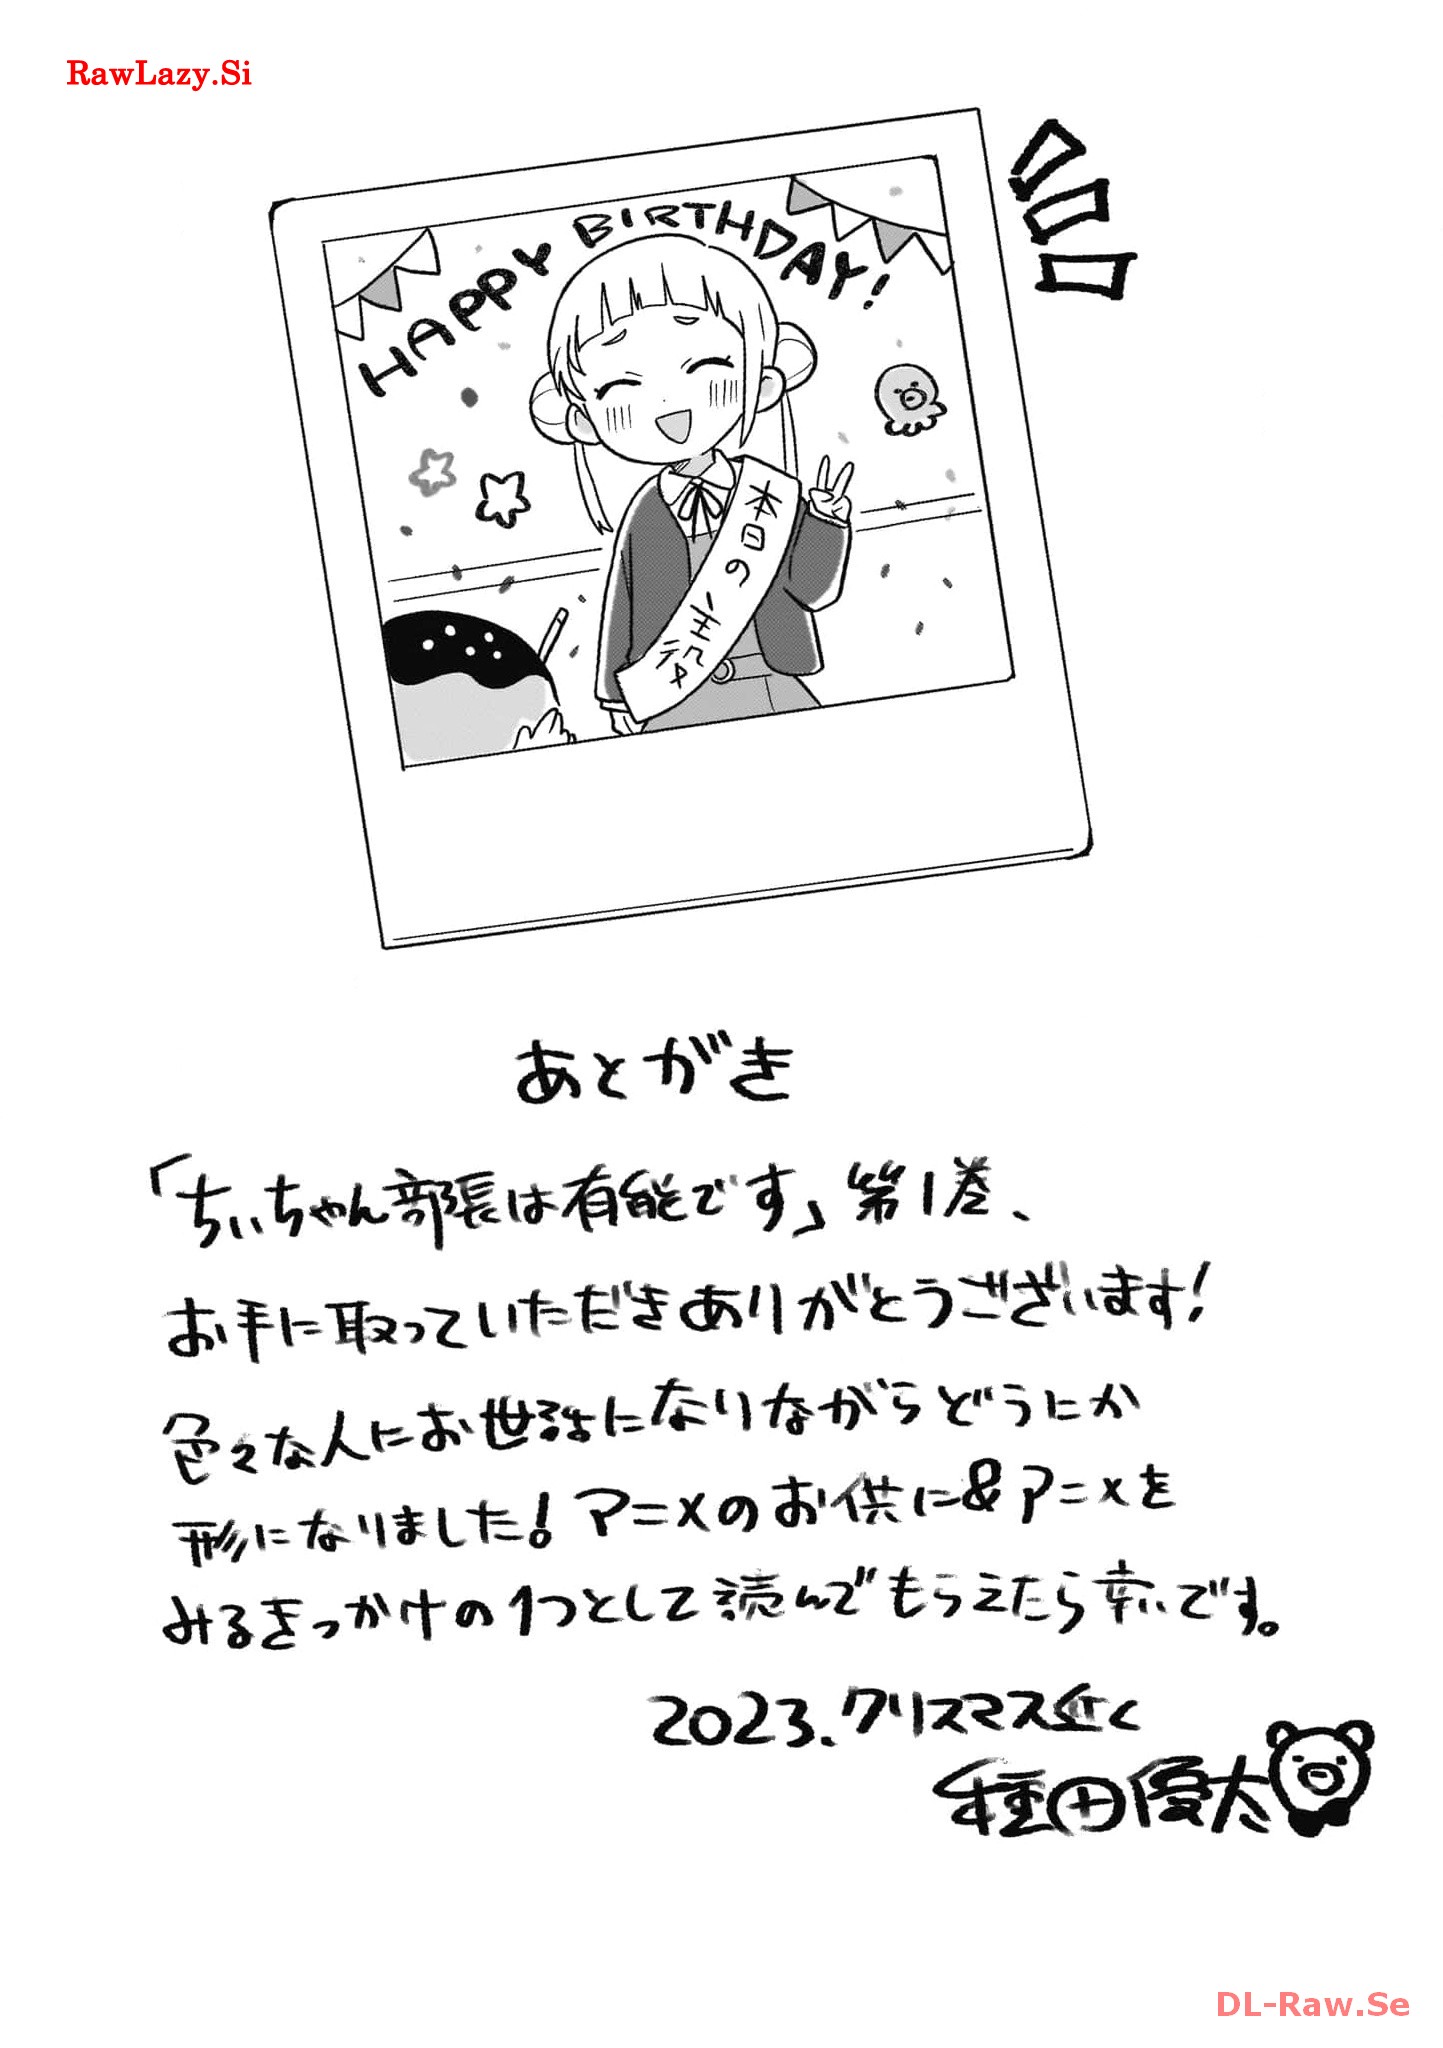 RawLazy.Si
HAPPY BIRTHDAY!
本日の主役
あとがき
「ちぃちゃん部長は有能です」第1巻、
お手に取っていただきありがとうございます!
色々な人にお世話になりながらどうにか
形になりました!アニメのお供に&アニメを
みるきっかけの1つとして読んでもらえたら幸いです。
2023.クリスマス近く
種田優太
DL-Raw.Se